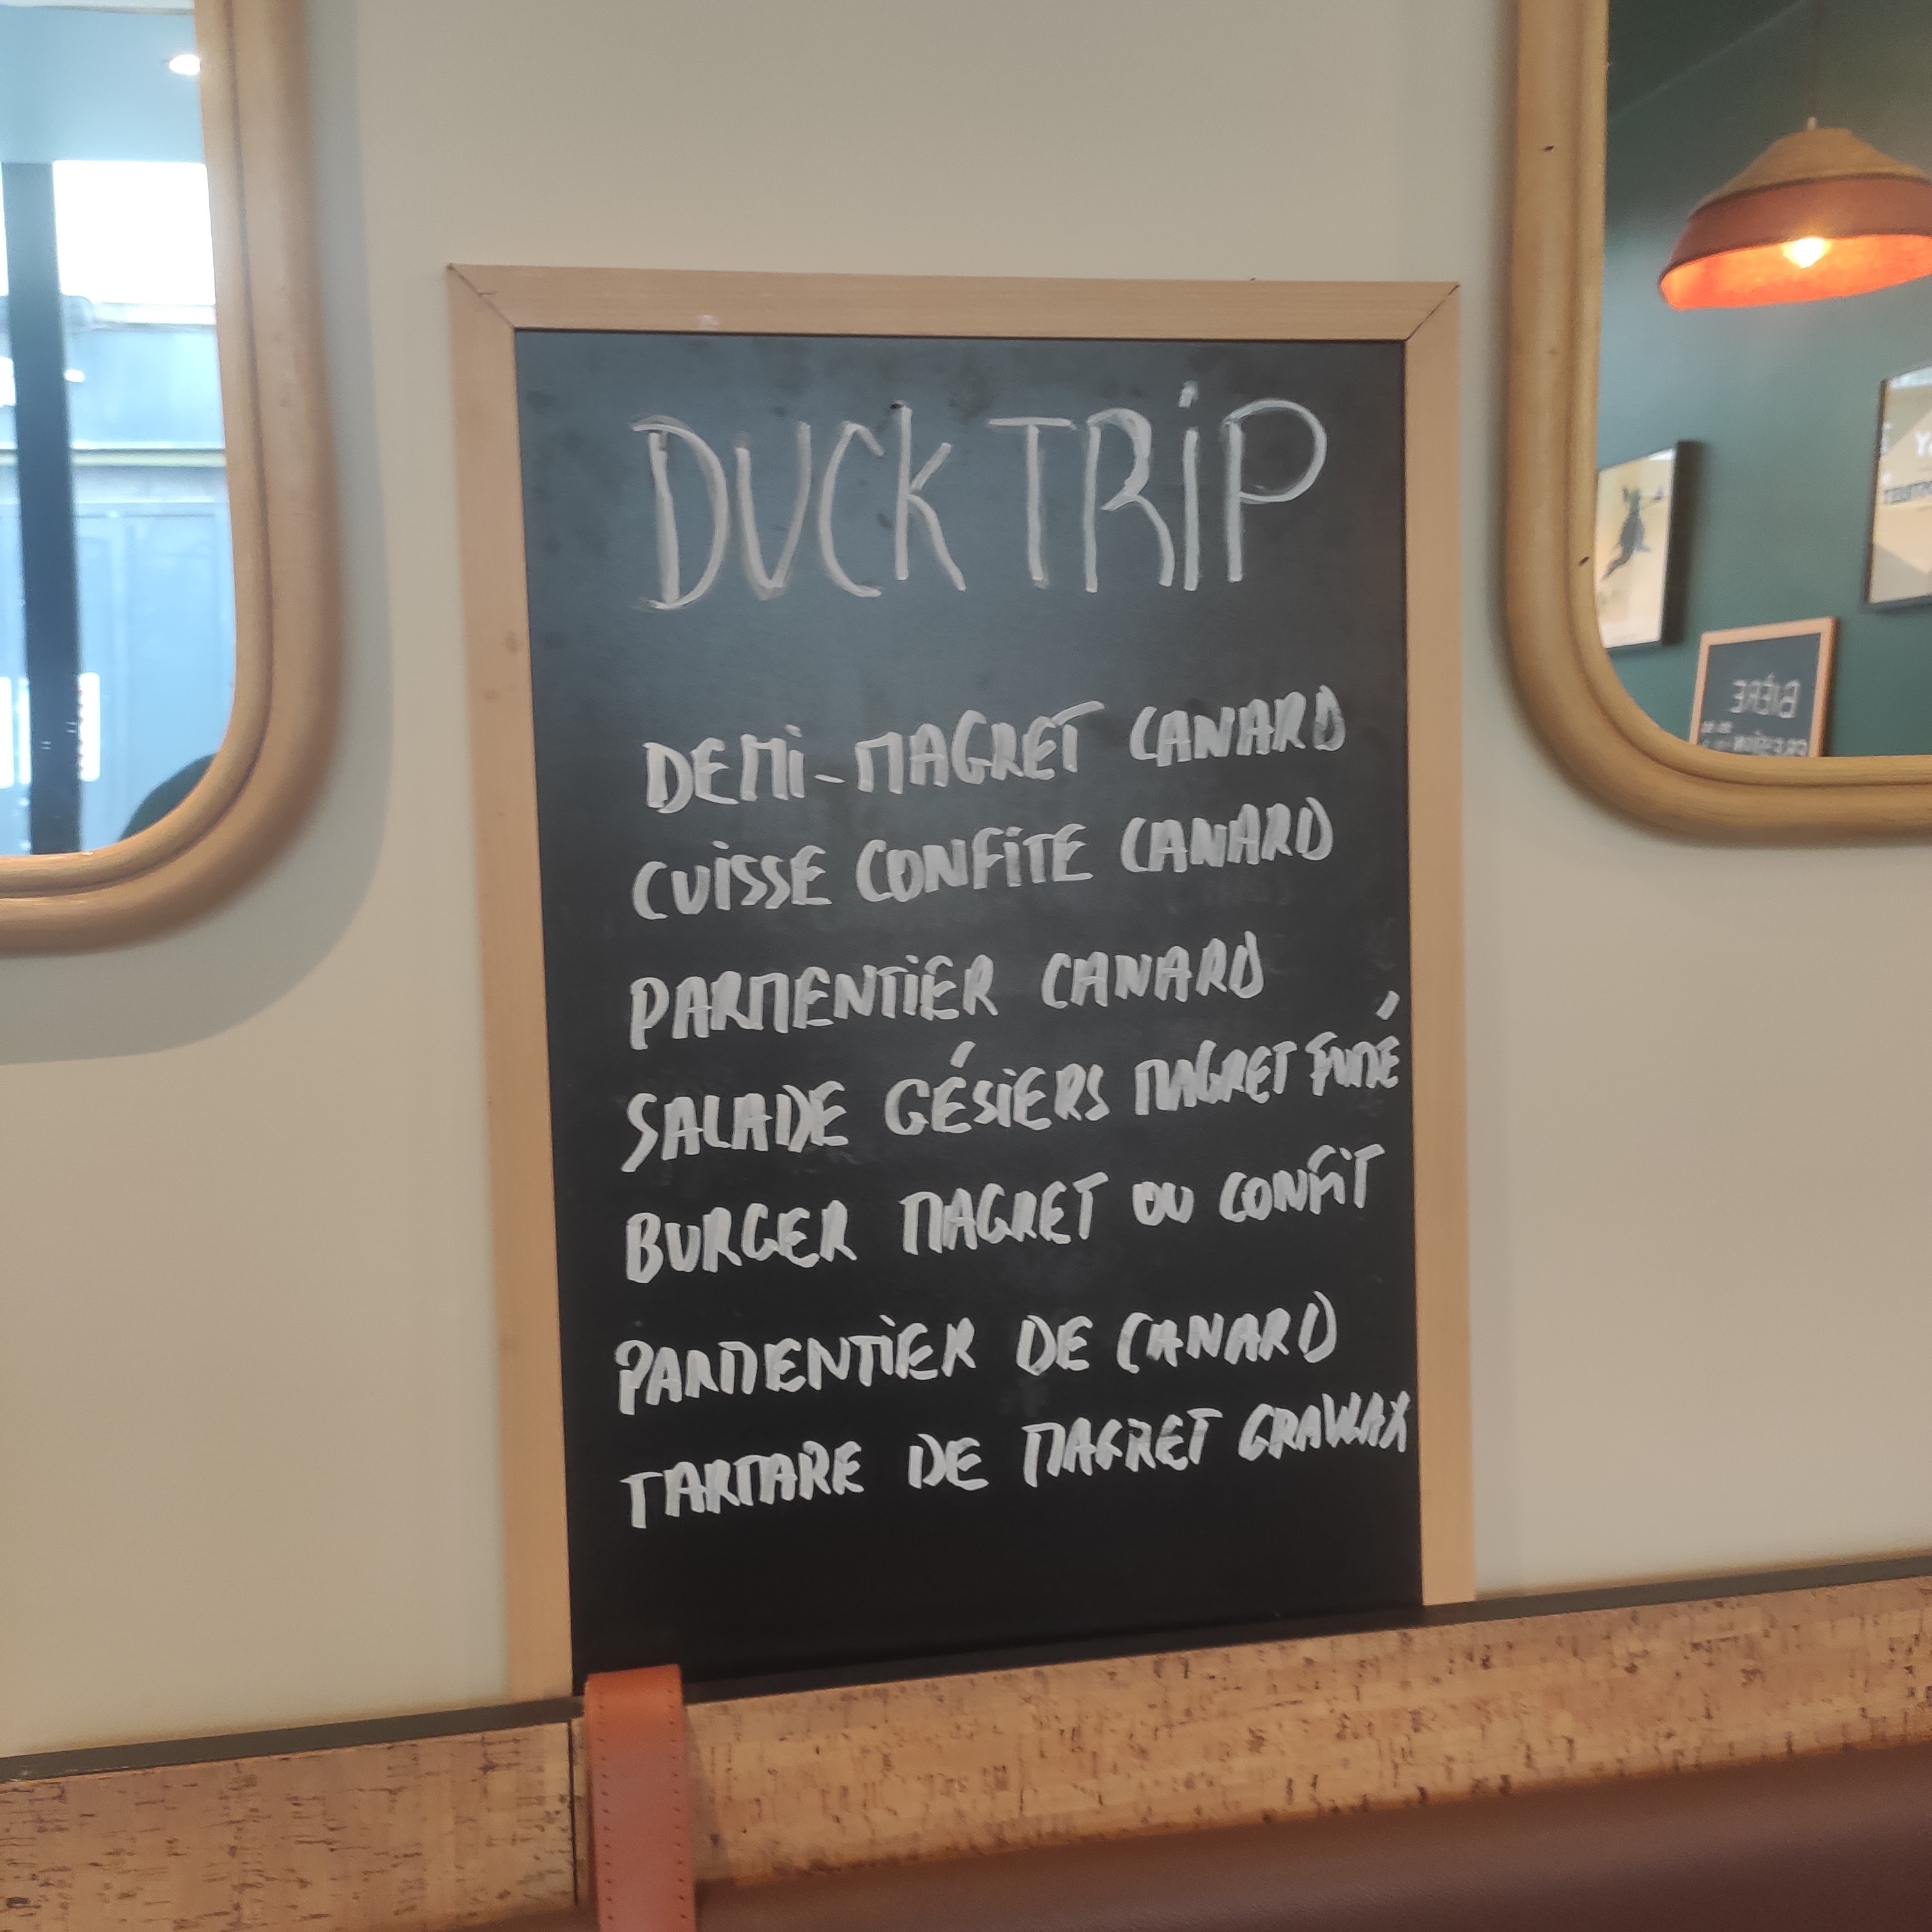 DUCK TRiP
DEMi-MAGRET CANARD
CUiSSE CONFiTE CANARD
PARMENTiER CANARD
SALADE GÉSiERS MAGRET FUMÉ
BURGER MAGRET OU CONFiT
PARMENTiER DE CANARD
TARTARE DE MAGRET GRAVLAX
BIÈRE